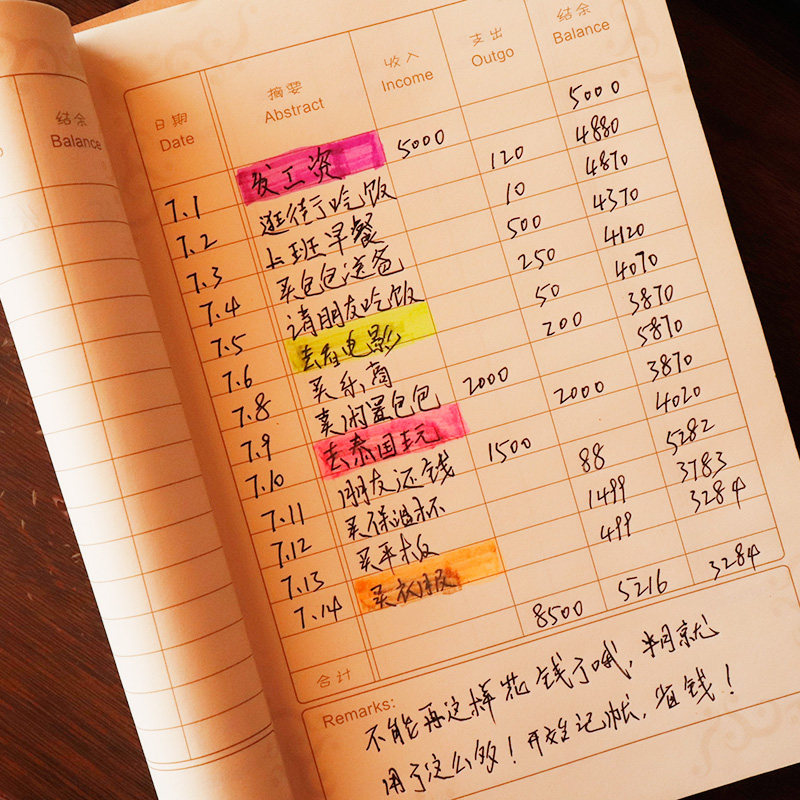 结余
Balance
日期 摘要 收入 支出 结余
Date Abstract Income Outgo Balance
7.1 发工资 5000 5000
7.2 逛街吃饭 120 4880
7.3 上班早餐 10 4870
7.4 买包包送爸 500 4370
7.5 请朋友吃饭 250 4120
7.6 去看电影 50 4070
7.8 买乐高 200 3870
7.9 卖闲置包包 2000 5870
7.10 去泰国玩 2000 3870
7.11 朋友还钱 1500 4020
7.12 买保温杯 88 5282
7.13 买平板 1499 3783
7.14 买衣服 499 3284
合计 8500 5216 3284
Remarks:
不能再这样花钱了哦，半月就
用了这么多！开始记帐，省钱！